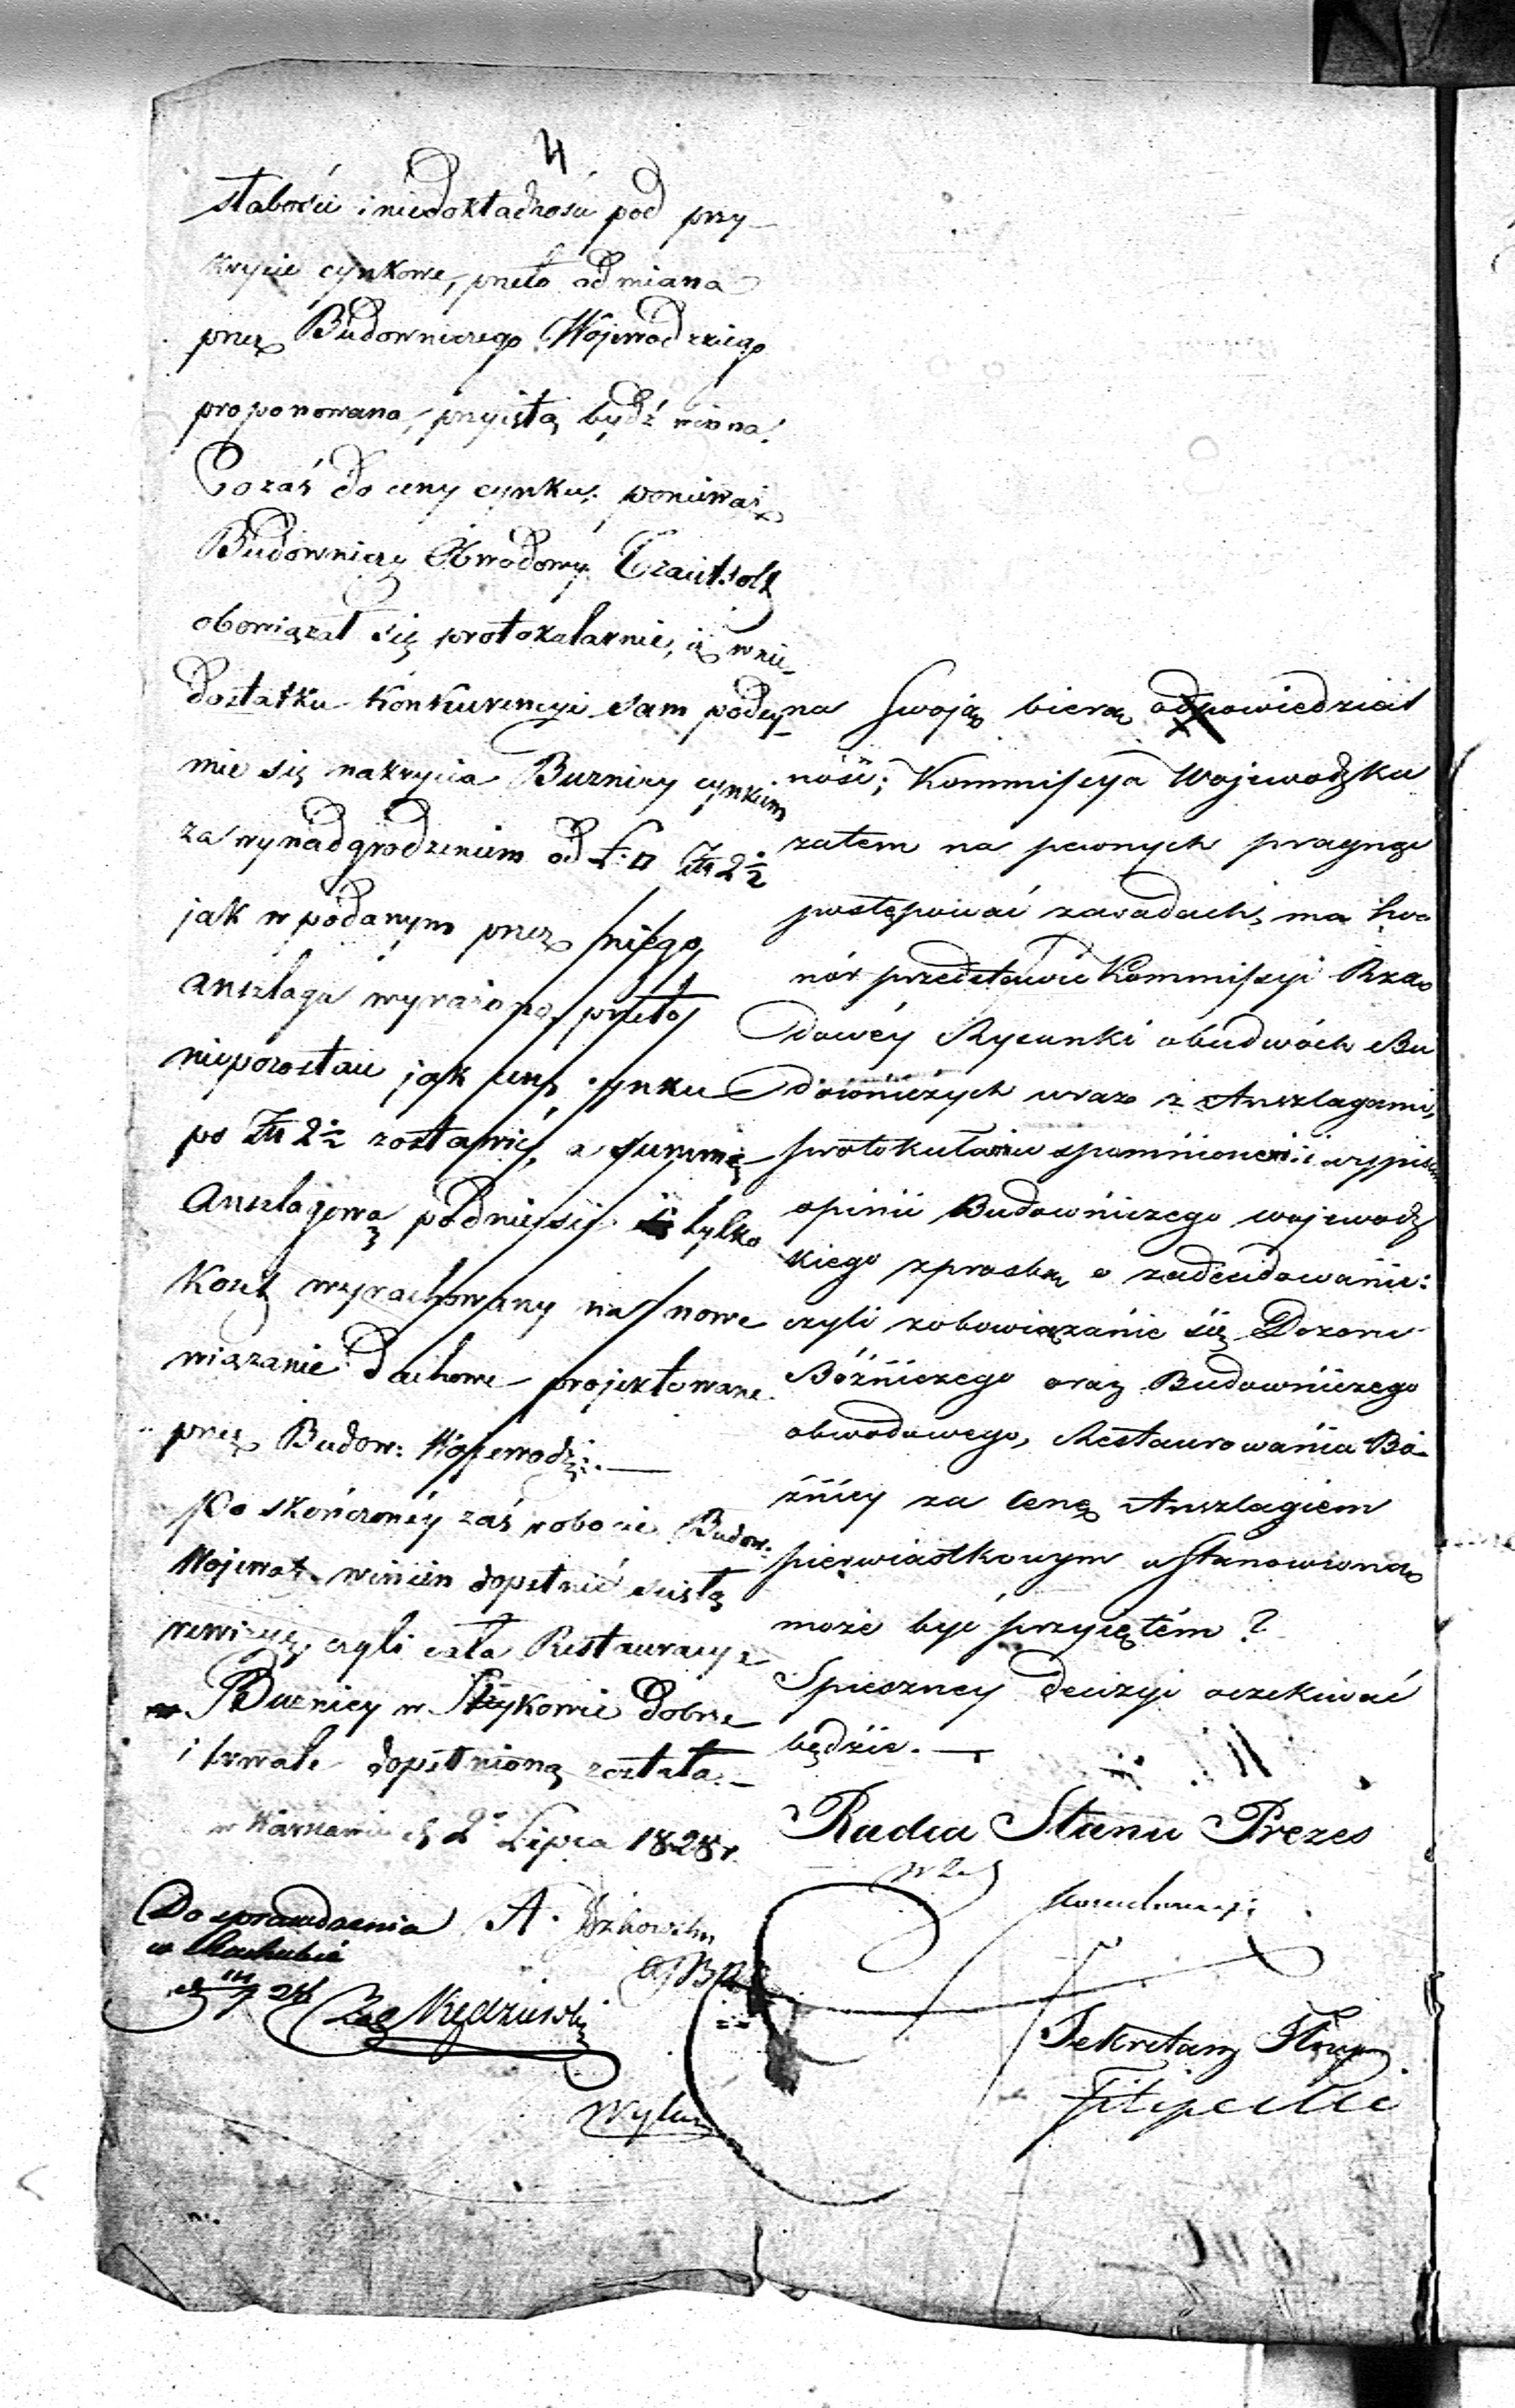 4
słabości i niedokładności pod przy-
krycie cynkowe, przeto odmiana
przez Budowniczego Wojewodzkiego
proponowana, przyiętą bydź winna.
Co zaś do ceny cynku; ponieważ
Budowniczy Obwodowy
obowiązał się protokularnie, iż w nie-
dostatku Konkurencyi sam podey-
mie się nakrycia Buznicy cynkiem
za wynadgrodzeniem od Ł: □ Złt 2½
jak w podanym przez niego
anszlagu wyrażono, przeto
niepozostaie jak cenę cynku
po Złt 2½ zostawić, a summę
Anszlagową podnieść tylko
Koszt wyrachowany na nowe
wiązanie dachowe projektowane
przez Budow: Wojewodz:.—
Po skończoney zaś robocie Budow:
Wojewodz. winien dopełnić ścisłą
rewizyę, czyli cała Restauracya
Buznicy w Strykowie dobrze
i trwale dopełnioną została.—
w Warszawie d. 2º Lipca 1828 r.
A.
Do sprawdzenia
w Rachubie
28
Wylud
na Swoją biorą odpowiedzial
ność; Kommissya Wojewodzka
zatem na pewnych pragnąc
postępować zasadach, ma ho-
nór przedstawić Kommissyi Rzą-
dowéy Rysunki obudwóch Bu
downiczych wraz z Anszlagami,
protokułami wypisem
opinii Budowniczego wojewodz
kiego z prośbą o zadecidowanie:
czyli zobowiązanie się Dozoru
Bóżniczego oraz Budowniczego
obwodowego, Restaurowania Bó-
żnicy za cenę Anszlagiem
pierwiastkowym ustanowioną
może być przyiętém?
Spieszney decizyi oczekiwać
będzie.—
Radca Stanu Prezes
w Z.
Sekretarz
Filipecki